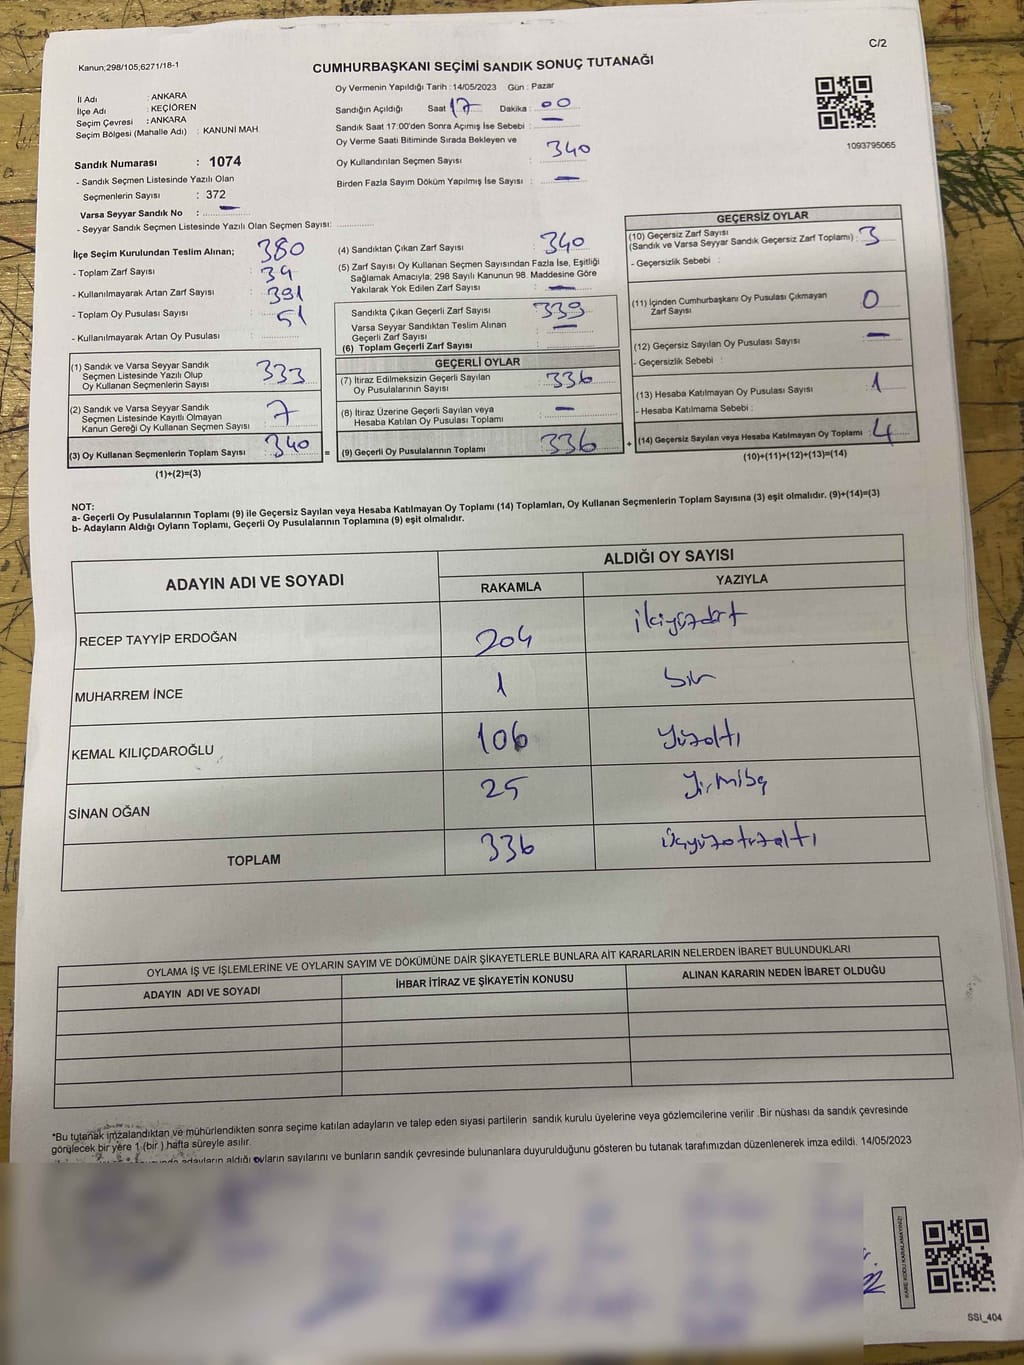 C/2
Kanun;298/105,6271/18-1
CUMHURBAŞKANI SEÇİMİ SANDIK SONUÇ TUTANAĞI
İl Adı : ANKARA
İlçe Adı : KEÇİÖREN
Seçim Çevresi : ANKARA
Seçim Bölgesi (Mahalle Adı) : KANUNİ MAH.
Sandık Numarası : 1074
- Sandık Seçmen Listesinde Yazılı Olan
Seçmenlerin Sayısı : 372
Varsa Seyyar Sandık No : —
- Seyyar Sandık Seçmen Listesinde Yazılı Olan Seçmen Sayısı:
Oy Vermenin Yapıldığı Tarih : 14/05/2023 Gün : Pazar
Sandığın Açıldığı Saat 17 Dakika : 00
Sandık Saat 17:00'den Sonra Açımış İse Sebebi : —
Oy Verme Saati Bitiminde Sırada Bekleyen ve
Oy Kullandırılan Seçmen Sayısı : 340
Birden Fazla Sayım Döküm Yapılmış İse Sayısı : —
1093795065
İlçe Seçim Kurulundan Teslim Alınan;
- Toplam Zarf Sayısı : 380
- Kullanılmayarak Artan Zarf Sayısı : 39
- Toplam Oy Pusulası Sayısı : 391
- Kullanılmayarak Artan Oy Pusulası : 51
(1) Sandık ve Varsa Seyyar Sandık
Seçmen Listesinde Yazılı Olup
Oy Kullanan Seçmenlerin Sayısı : 333
(2) Sandık ve Varsa Seyyar Sandık
Seçmen Listesinde Kayıtlı Olmayan
Kanun Gereği Oy Kullanan Seçmen Sayısı : 7
(3) Oy Kullanan Seçmenlerin Toplam Sayısı : 340
(1)+(2)=(3)
(4) Sandıktan Çıkan Zarf Sayısı : 340
(5) Zarf Sayısı Oy Kullanan Seçmen Sayısından Fazla İse, Eşitliği
Sağlamak Amacıyla; 298 Sayılı Kanunun 98. Maddesine Göre
Yakılarak Yok Edilen Zarf Sayısı : —
Sandıkta Çıkan Geçerli Zarf Sayısı : 339
Varsa Seyyar Sandıktan Teslim Alınan
Geçerli Zarf Sayısı : —
(6) Toplam Geçerli Zarf Sayısı :
GEÇERLİ OYLAR
(7) İtiraz Edilmeksizin Geçerli Sayılan
Oy Pusulalarının Sayısı : 336
(8) İtiraz Üzerine Geçerli Sayılan veya
Hesaba Katılan Oy Pusulası Toplamı : —
= (9) Geçerli Oy Pusulalarının Toplamı : 336
GEÇERSİZ OYLAR
(10) Geçersiz Zarf Sayısı
(Sandık ve Varsa Seyyar Sandık Geçersiz Zarf Toplamı) : 3
- Geçersizlik Sebebi :
(11) İçinden Cumhurbaşkanı Oy Pusulası Çıkmayan
Zarf Sayısı : 0
(12) Geçersiz Sayılan Oy Pusulası Sayısı : —
- Geçersizlik Sebebi :
(13) Hesaba Katılmayan Oy Pusulası Sayısı : 1
- Hesaba Katılmama Sebebi :
+ (14) Geçersiz Sayılan veya Hesaba Katılmayan Oy Toplamı : 4
(10)+(11)+(12)+(13)=(14)
NOT:
a- Geçerli Oy Pusulalarının Toplamı (9) ile Geçersiz Sayılan veya Hesaba Katılmayan Oy Toplamı (14) Toplamları, Oy Kullanan Seçmenlerin Toplam Sayısına (3) eşit olmalıdır. (9)+(14)=(3)
b- Adayların Aldığı Oyların Toplamı, Geçerli Oy Pusulalarının Toplamına (9) eşit olmalıdır.
ADAYIN ADI VE SOYADI
ALDIĞI OY SAYISI
RAKAMLA YAZIYLA
RECEP TAYYİP ERDOĞAN 204 ikiyüzdört
MUHARREM İNCE 1 bir
KEMAL KILIÇDAROĞLU 106 Yüzaltı
SİNAN OĞAN 25 Yirmibeş
TOPLAM 336 üçyüzotuzaltı
OYLAMA İŞ VE İŞLEMLERİNE VE OYLARIN SAYIM VE DÖKÜMÜNE DAİR ŞİKAYETLERLE BUNLARA AİT KARARLARIN NELERDEN İBARET BULUNDUKLARI
ADAYIN ADI VE SOYADI İHBAR İTİRAZ VE ŞİKAYETİN KONUSU ALINAN KARARIN NEDEN İBARET OLDUĞU
*Bu tutanak imzalandıktan ve mühürlendikten sonra seçime katılan adayların ve talep eden siyasi partilerin sandık kurulu üyelerine veya gözlemcilerine verilir .Bir nüshası da sandık çevresinde
görülecek bir yere 1 (bir ) hafta süreyle asılır.
adayların aldığı oyların sayılarını ve bunların sandık çevresinde bulunanlara duyurulduğunu gösteren bu tutanak tarafımızdan düzenlenerek imza edildi. 14/05/2023
KARE KODU KARALAMAYINIZ!
SSI_404